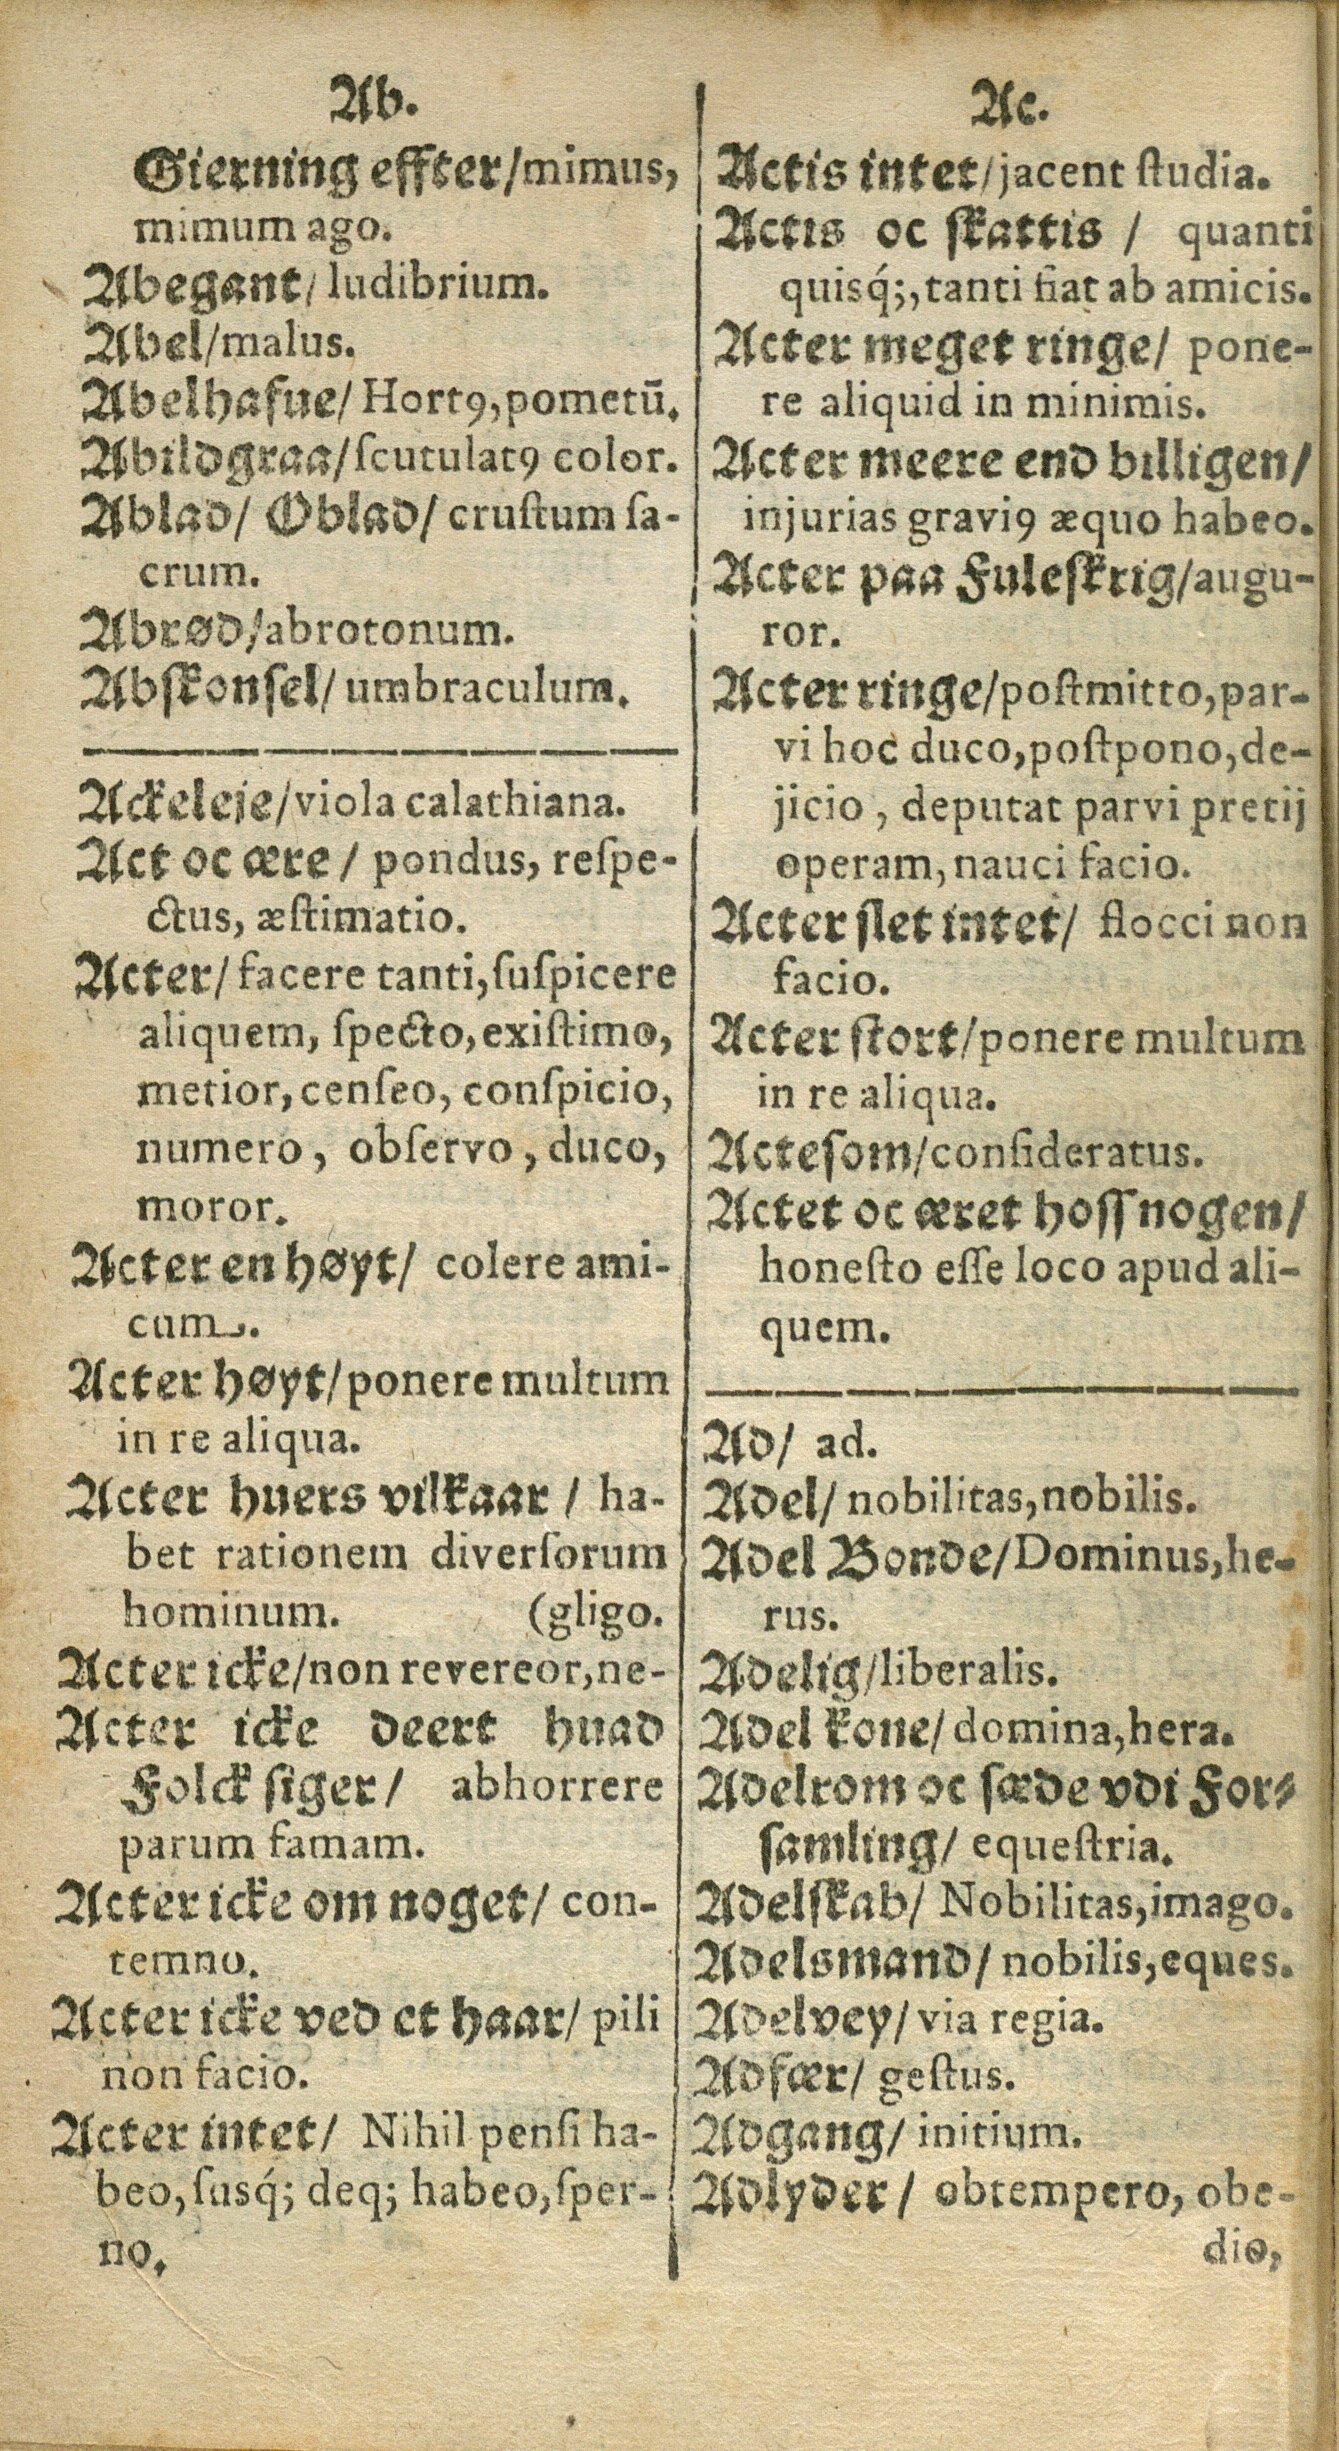 Ab.
Gierning effter/mimus,
mimum ago.
Abegant/ ludibrium.
Abel/malus.
Abelhafue/ Hortꝰ,pometū.
Abildgraa/ſcutulatꝰ color.
Ablad/ Oblad/ cruſtum ſa-
crum.
Abrød/abrotonum.
Abſkonſel/ umbraculum.
Ackeleje/viola calathiana.
Act oc ære / pondus, reſpe-
ctus, æſtimatio.
Acter/ facere tanti,ſuſpicere
aliquem, ſpecto,exiſtimo,
metior,cenſeo, conſpicio,
numero, obſervo, duco,
moror.
Acter en høyt/ colere ami-
cum.
Acter høyt/ponere multum
in re aliqua.
Acter huers vilkaar / ha-
bet rationem diverſorum
hominum. (gligo.
Acter icke/non revereor,ne-
Acter icke deert huad
Folck ſiger/ abhorrere
parum famam.
Acter icke om noget/ con-
temno.
Acter icke ved et haar/ pili
non facio.
Acter intet/ Nihil penſi ha-
beo,ſusq́; deq; habeo,ſper-
no.
Ac.
Actis intet/jacent ſtudia.
Actis oc ſkattis / quanti
quisq́;,tanti fiat ab amicis.
Acter meget ringe/ pone-
re aliquid in minimis.
Acter meere end billigen/
injurias graviꝰ æquo habeo.
Acter paa Fuleſkrig/augu-
ror.
Acter ringe/poſtmitto,par-
vi hoc duco,poſtpono,de-
jicio, deputat parvi pretij
operam,nauci facio.
Acter ſlet intet/ flocci non
facio.
Acter ſtort/ponere multum
in re aliqua.
Acteſom/conſideratus.
Actet oc æret hoſſ nogen/
honeſto eſſe loco apud ali-
quem.
Ad/ ad.
Adel/ nobilitas,nobilis.
Adel Bonde/Dominus,he-
rus.
Adelig/liberalis.
Adel kone/ domina,hera.
Adelrom oc ſæde vdi For-
ſamling/ equeſtria.
Adelſkab/ Nobilitas,imago.
Adelsmand/ nobilis,eques.
Adelvey/ via regia.
Adfær/ geſtus.
Adgang/ initium.
Adlyder/ obtempero, obe-
dio,